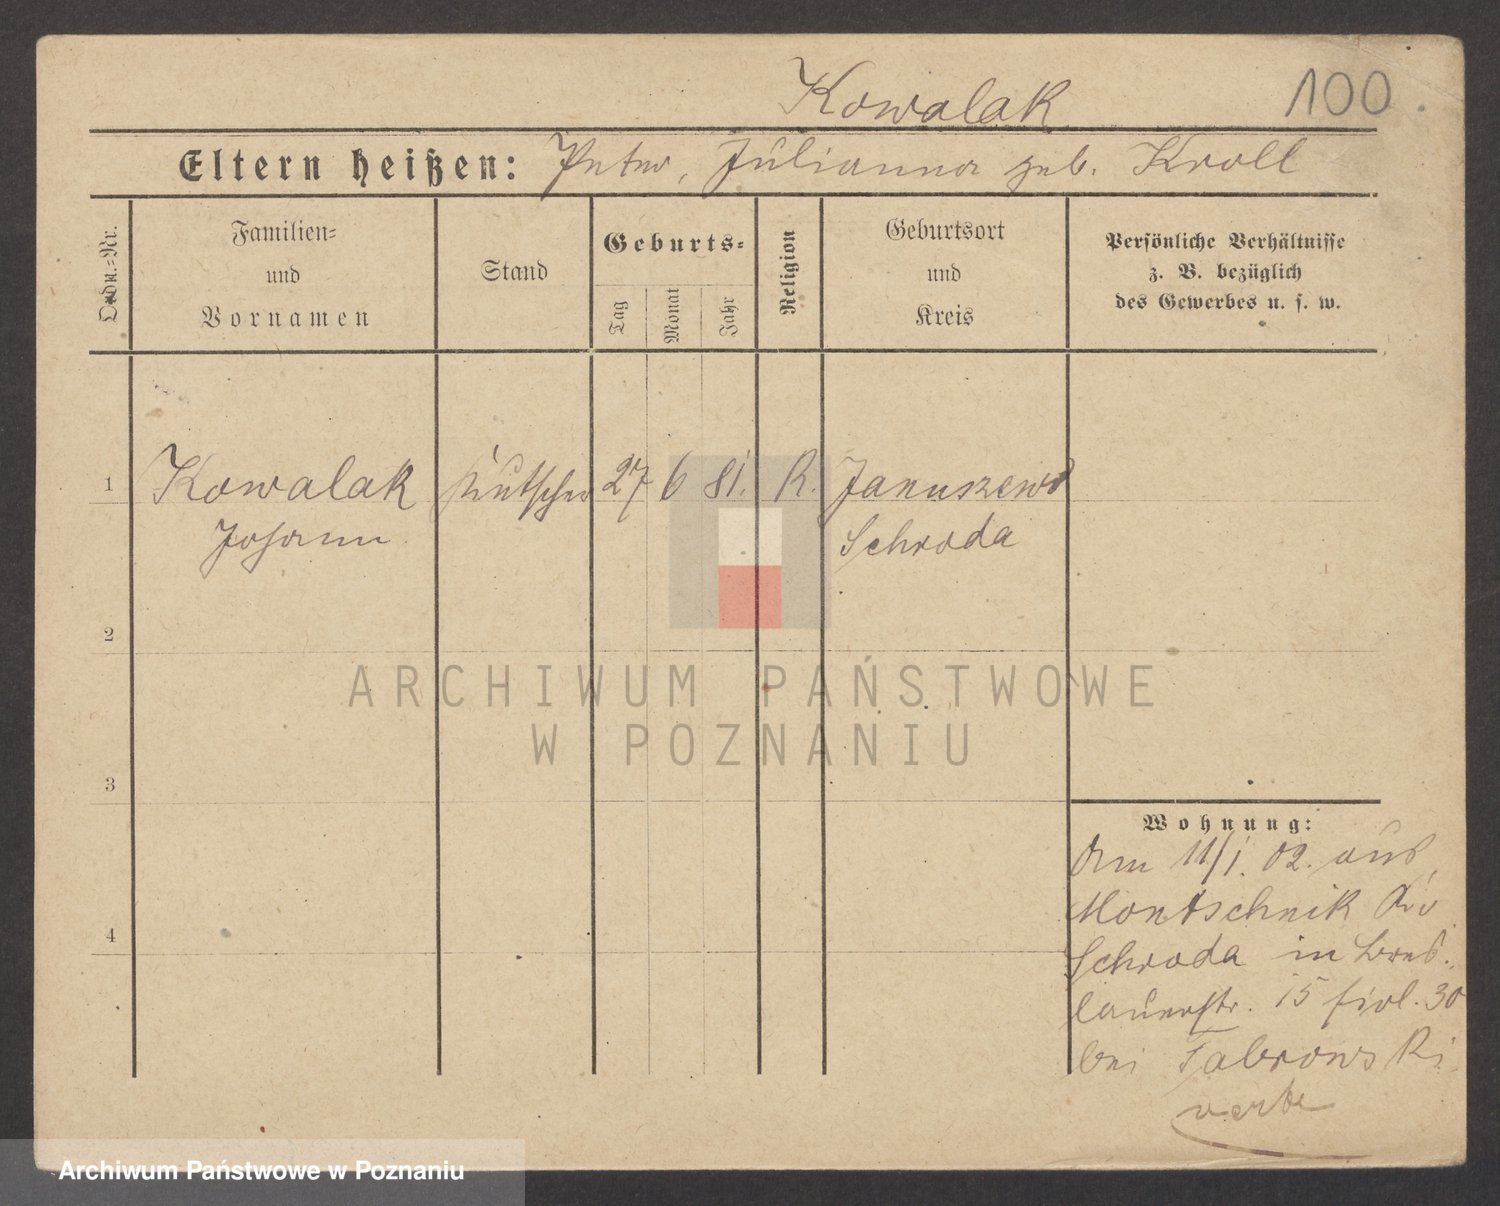 Kowalak 100.
Eltern heißen: Peter, Julianna geb. Kroll
Ordn.=Nr.
Familien=
und
Vornamen
Stand
Geburts=
Tag
Monat
Jahr
Religion
Geburtsort
und
Kreis
Persönliche Verhältnisse
z. B. bezüglich
des Gewerbes u. s. w.
1 Kowalak Kutscher 27 6 81. R. Januszewo
Johann Schroda
2
3
4
Wohnung:
Am 11/1. 02. aus
Montschnik
Schroda in Bres
lauerstr. 15
bei
ARCHIWUM PAŃSTWOWE
W POZNANIU
Archiwum Państwowe w Poznaniu